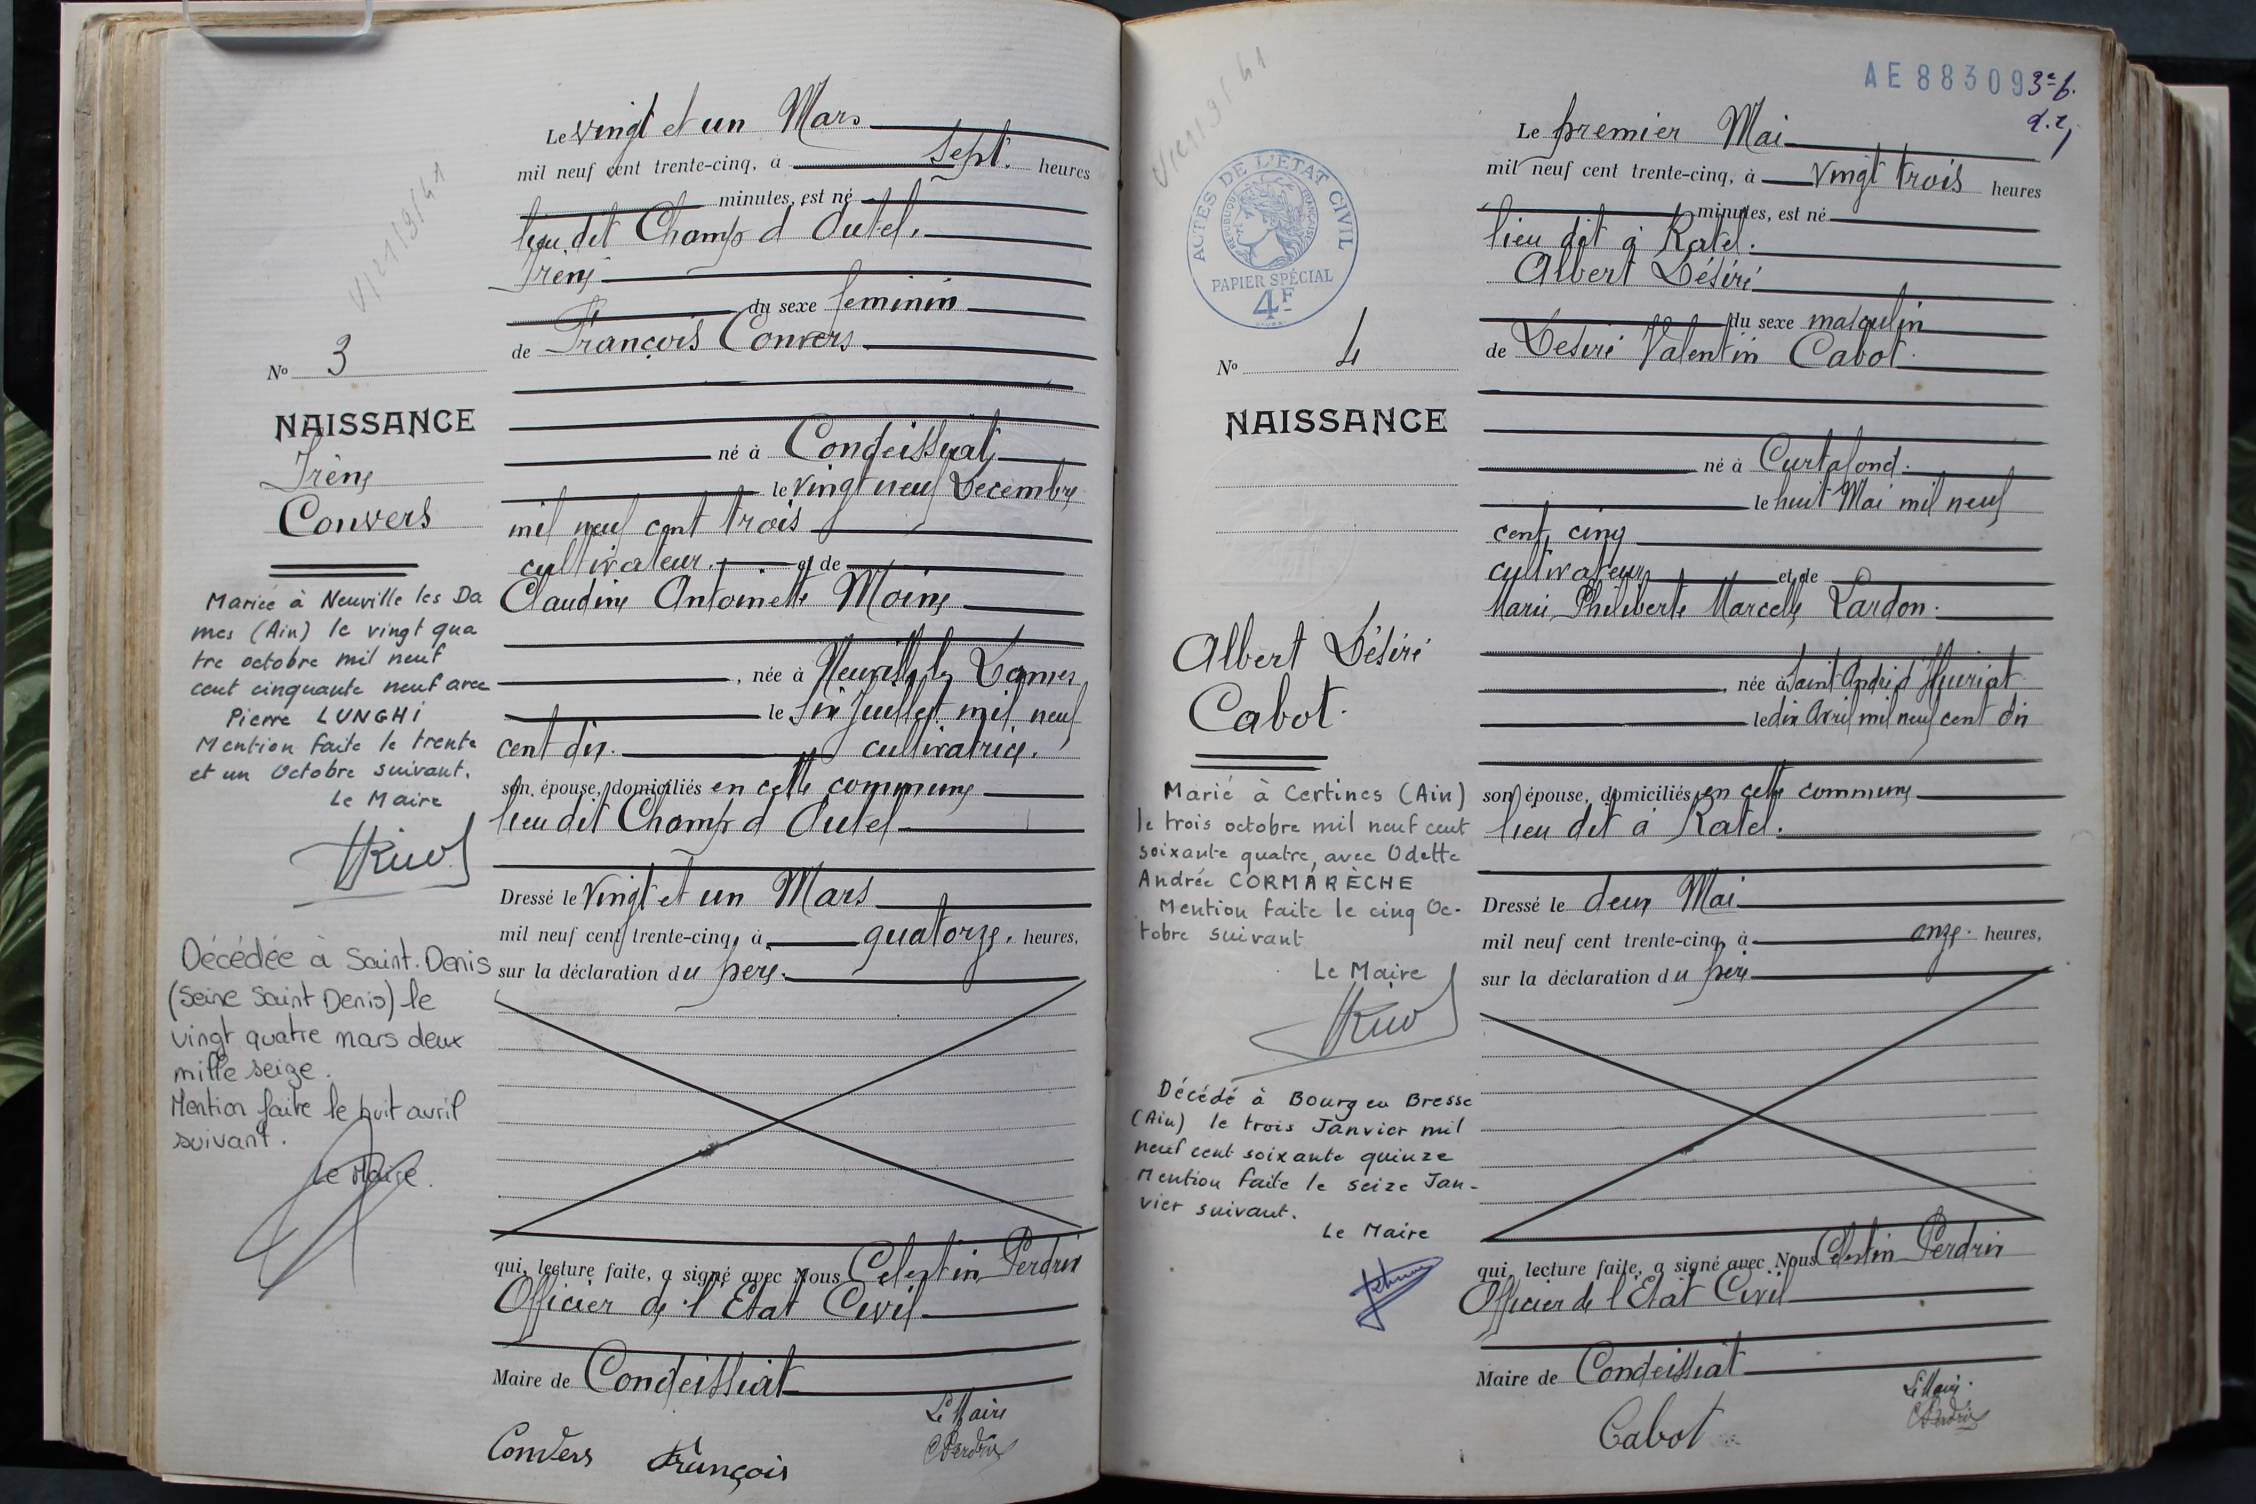 Le vingt et un Mars
mil neuf cent trente-cinq, à sept. heures
minutes, est né
lieu dit Champ d Outel.
Irène
du sexe féminin
de François Convers
né à Condeissiat
le vingt neuf Decembre
mil neuf cent trois
cultivateur. et de
Claudine Antoinette Moine
, née à Neuville les Dames
le six Juillet mil neuf
cent dix. cultivatrice.
son épouse, domiciliés en cette commune
lieu dit Champ d Outel
Dressé le vingt et un Mars
mil neuf cent trente-cinq, à quatorze. heures,
sur la déclaration du père.
qui, lecture faite, a signé avec Nous Celestin Perdrix
Officier de l'Etat Civil
Maire de Condeissiat
Le Maire
C Perdrix
Convers François
No 3
NAISSANCE
Irène
Convers
Mariée à Neuville les Da
mes (Ain) le vingt qua
tre octobre mil neuf
cent cinquante neuf avec
Pierre LUNGHI
Mention faite le trente
et un Octobre suivant.
Le Maire
Décédée à Saint-Denis
(Seine Saint Denis) le
vingt quatre mars deux
mille seize.
Mention faite le huit avril
suivant.
Le Maire.
AE 88309
ACTES DE L'ÉTAT CIVIL
RÉPUBLIQUE FRANÇAISE
PAPIER SPÉCIAL
4F
No 4
NAISSANCE
Albert Désiré
Cabot.
Marié à Certines (Ain)
le trois octobre mil neuf cent
soixante quatre, avec Odette
Andrée CORMARÈCHE
Mention faite le cinq Oc-
tobre suivant
Le Maire
Décédé à Bourg en Bresse
(Ain) le trois Janvier mil
neuf cent soixante quinze
Mention faite le seize Jan-
vier suivant.
Le Maire
Le premier Mai
mil neuf cent trente-cinq, à vingt trois heures
minutes, est né
lieu dit à Ratel.
Albert Désiré
du sexe masculin
de Désiré Valentin Cabot.
né à Curtafond.
le huit Mai mil neuf
cent cinq
cultivateur et de
Marie Philiberte Marcelle Lardon.
, née à Saint André d'Huiriat
le dix Avril mil neuf cent dix
son épouse, domiciliés en cette commune
lieu dit à Ratel.
Dressé le deux Mai
mil neuf cent trente-cinq, à onze. heures,
sur la déclaration du père
qui, lecture faite, a signé avec Nous Celestin Perdrix
Officier de l'Etat Civil
Maire de Condeissiat
Le Maire.
C Perdrix
Cabot